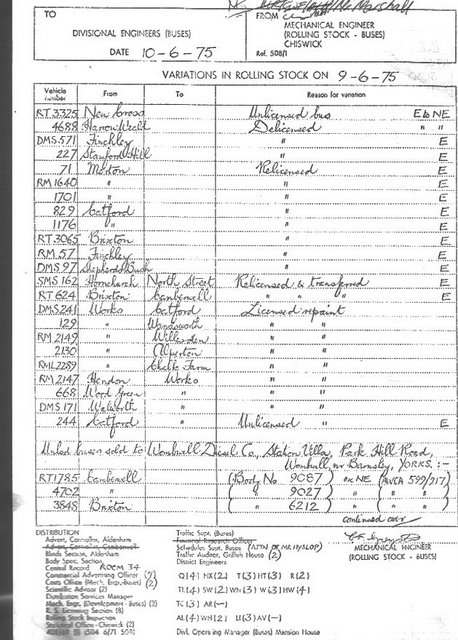 Mr Marshall
TO
FROM
DIVISIONAL ENGINEERS (BUSES)
MECHANICAL ENGINEER
(ROLLING STOCK - BUSES)
CHISWICK
DATE 10-6-75
Ref. 508/1
VARIATIONS IN ROLLING STOCK ON 9-6-75
Vehicle number From To Reason for variation
RT 3325 New Cross Unlicensed bus E to NE
4688 Harrow Weald Delicensed " "
DMS 571 Finchley " E
227 Stamford Hill " E
71 Merton Relicensed E
RM 1640 " " E
1701 " " E
829 Catford " E
1176 " " E
RT 3065 Brixton " E
RM 57 Finchley " E
DMS 97 Shepherds Bush " E
SMS 162 Hornchurch North Street Relicensed & transferred E
RT 624 Brixton Camberwell " " " E
DMS 241 Works Catford Licensed repaint
129 " Wandsworth " "
RM 2149 " Willesden " "
2130 " Alperton " "
RML 2289 " Chalk Farm " "
RM 2147 Hendon Works " "
668 Wood Green " " "
DMS 171 Walworth " " "
244 Catford " Unlicensed " E
Unlcd buses sold to Wombwell Diesel Co, Station Villa, Park Hill Road,
Wombwell nr Barnsley, YORKS. :-
RT 1785 Camberwell (Body No 9087) ex NE (AVCA 599/317)
4702 " ( " 9027) " ( " " )
3848 Brixton ( " 6212) " ( " " )
continued over
DISTRIBUTION
Advert. Controller, Aldenham
Blinds Section, Aldenham
Body Spec. Section
Central Record ROOM 34
Commercial Advertising Officer (7)
Costs Office (Mech. Engr. Buses) (2)
Scientific Adviser (2)
Distribution Services Manager
Mech. Engr. (Development - Buses) (2)
R. S. Licensing Section (8)
Rolling Stock Inspection
Statistical Office - Chiswick (2)
Traffic Supt. (Buses)
Financial Research Officer
Schedules Supt. Buses (ATTN OF MR HYSLOP)
Traffic Auditor, Griffith House (2)
District Engineers
Q(4) NX(2) T(3) HT(3) R(2)
TL(4) SW(2) WN(3) W(3) HW(4)
TC(3) AR(-)
AL(4) WH(2) U(3) AV(-)
Divl. Operating Manager (Buses) Mansion House
MECHANICAL ENGINEER
(ROLLING STOCK - BUSES)